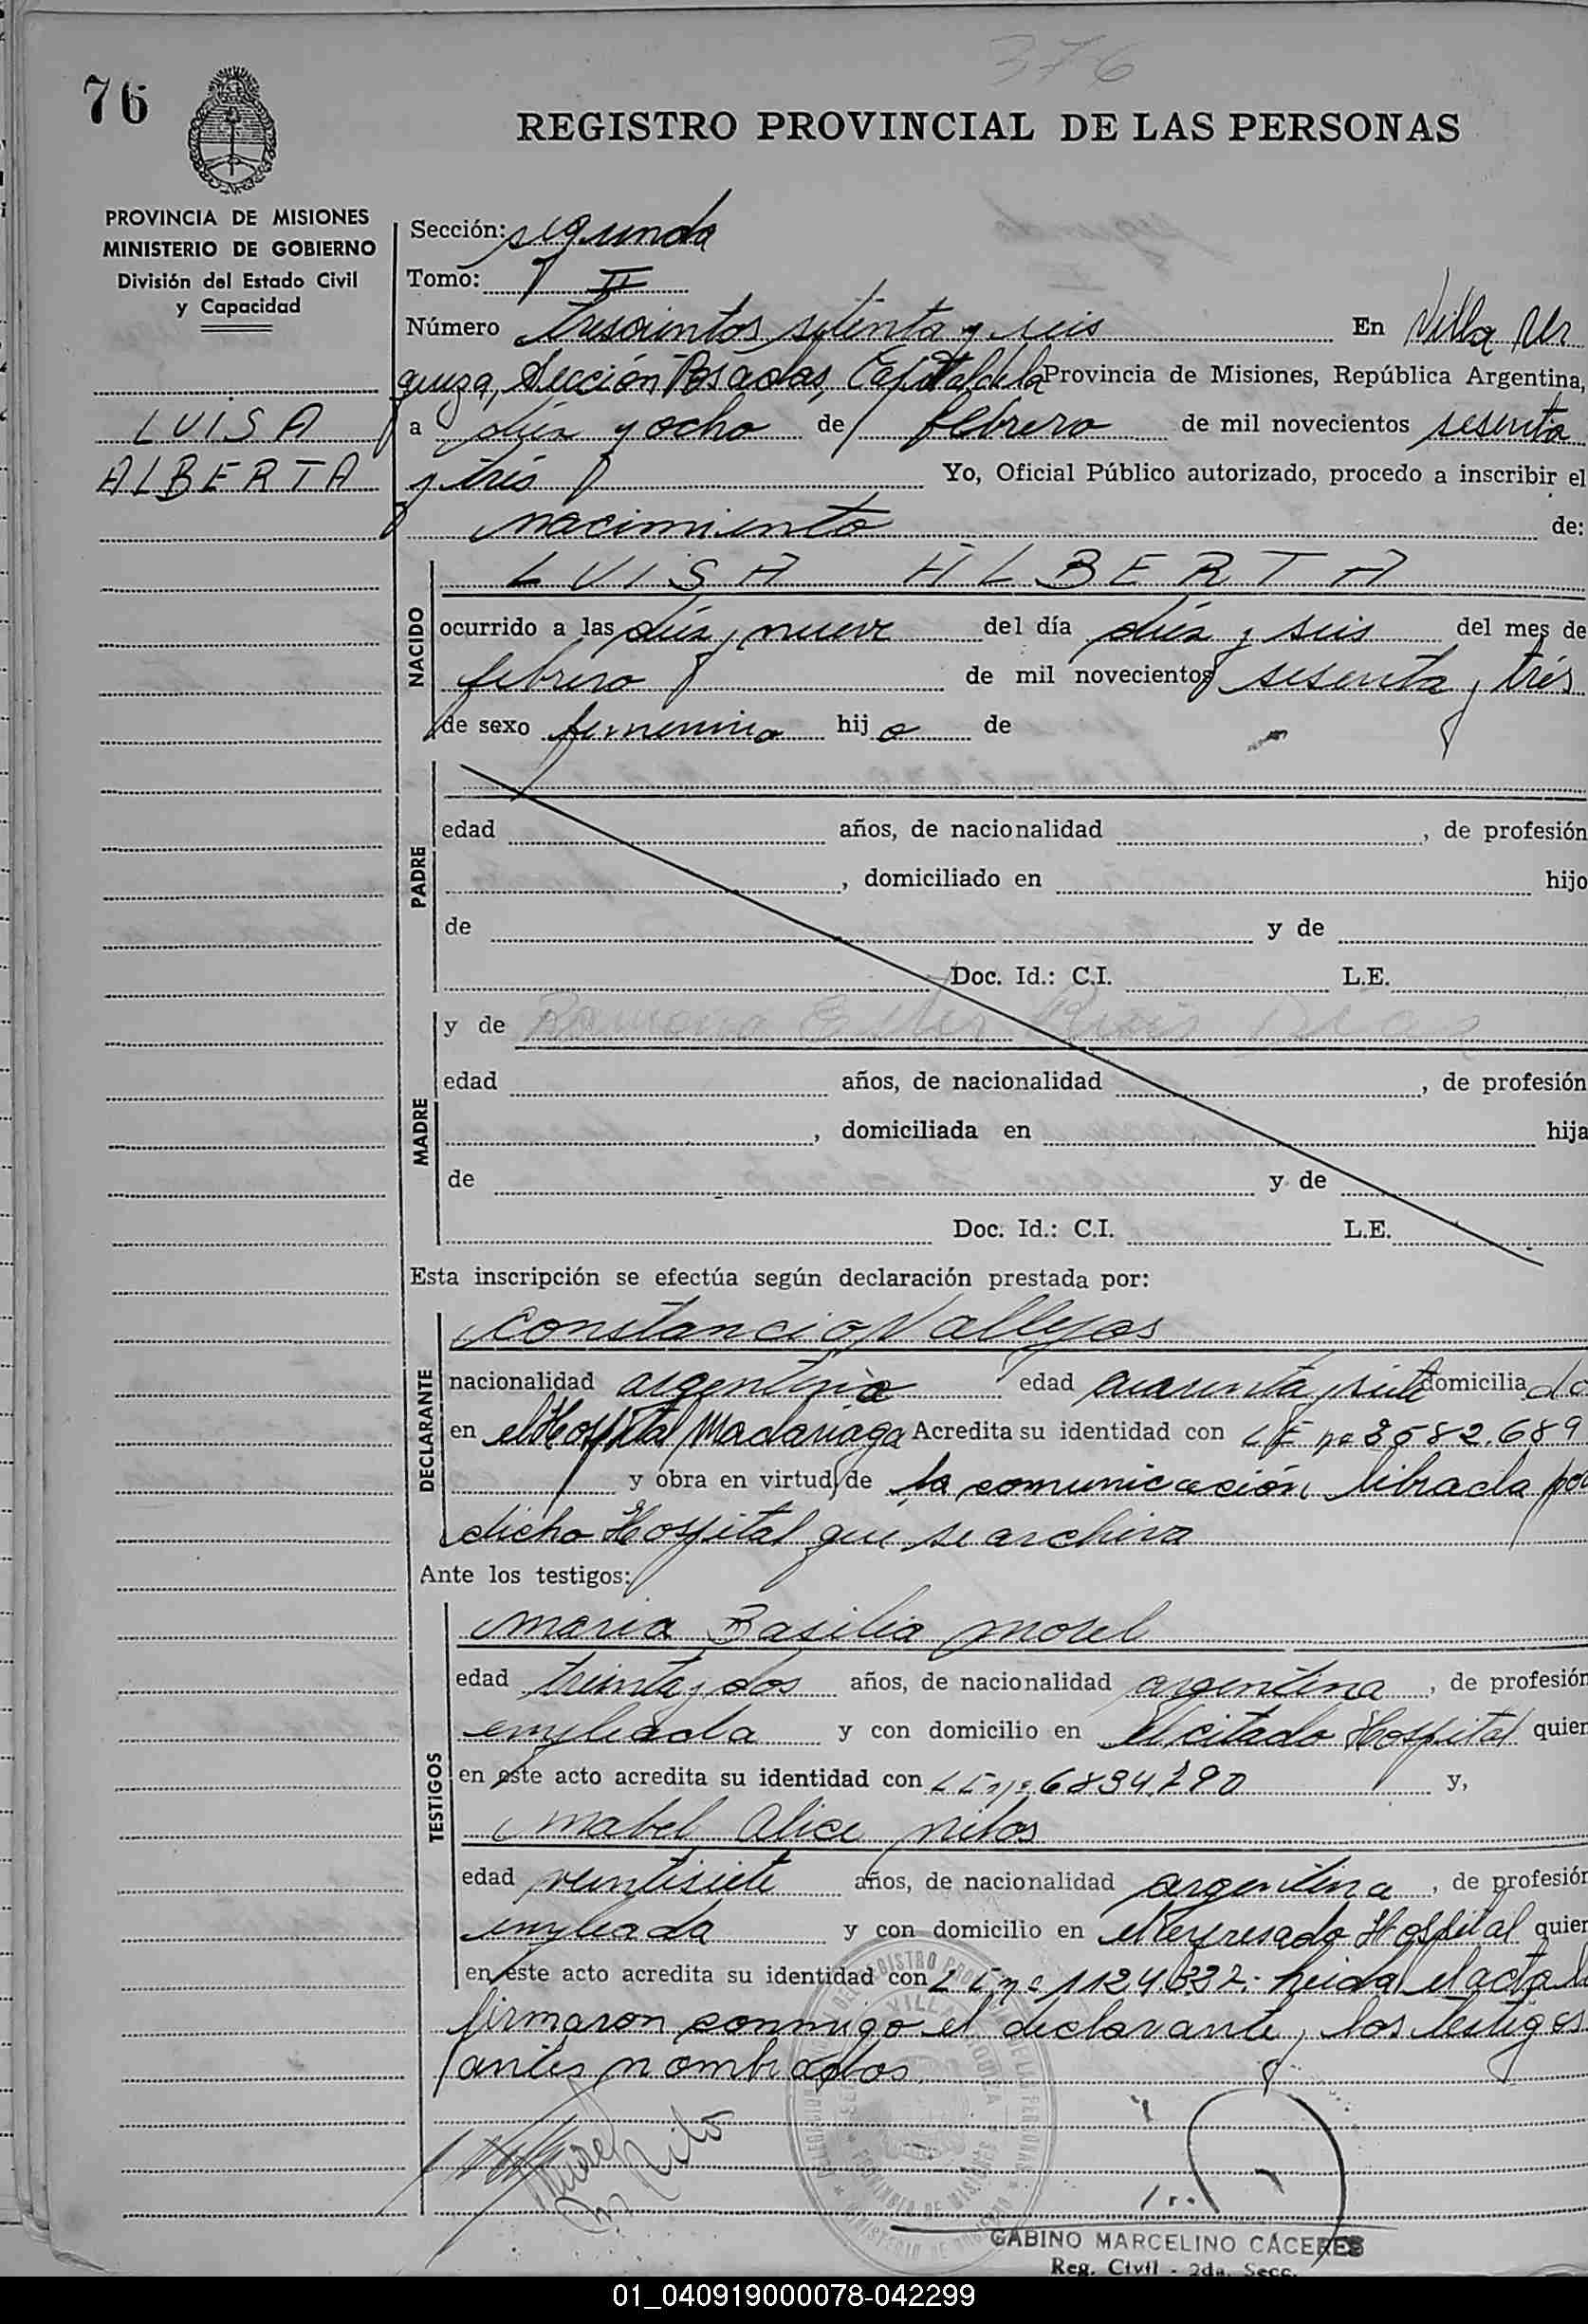 376
76
REGISTRO PROVINCIAL DE LAS PERSONAS
PROVINCIA DE MISIONES
MINISTERIO DE GOBIERNO
División del Estado Civil
y Capacidad
LUISA
ALBERTA
Sección: segunda
Tomo: II
Número trescientos setenta y seis En Villa Ur
quiza, Sección Posadas, Capital de la Provincia de Misiones, República Argentina,
a diez y ocho de febrero de mil novecientos sesenta
y trés Yo, Oficial Público autorizado, procedo a inscribir el
nacimiento de:
NACIDO
LUISA ALBERTA
ocurrido a las diez y nueve del día diez y seis del mes de
febrero de mil novecientos sesenta y trés
de sexo femenino hij o de
PADRE
edad años, de nacionalidad , de profesión
, domiciliado en hijo
de y de
Doc. Id.: C.I. L.E.
MADRE
y de Ramona Ester Ruis Diaz
edad años, de nacionalidad , de profesión
, domiciliada en hija
de y de
Doc. Id.: C.I. L.E.
Esta inscripción se efectúa según declaración prestada por:
DECLARANTE
Constancio Vallejos
nacionalidad argentina edad cuarenta y siete domicilia do
en el Hospital Madariaga Acredita su identidad con LE nº 3582.689
y obra en virtud de la comunicación librada por
dicho Hospital que se archiva
Ante los testigos:
TESTIGOS
Maria Basilia Morel
edad treinta y dos años, de nacionalidad argentina , de profesión
empleada y con domicilio en el citado Hospital quien
en este acto acredita su identidad con LE nº 6834.290 y,
Mabel Alice Nilos
edad veintisiete años, de nacionalidad argentina , de profesión
empleada y con domicilio en el expresado Hospital quien
en este acto acredita su identidad con LE nº 1124.332. Leida el acta la
firmaron conmigo el declarante y los testigos
antes nombrados.
Morel
GABINO MARCELINO CÁCERES
Reg. Civil - 2da. Secc.
01_040919000078-042299